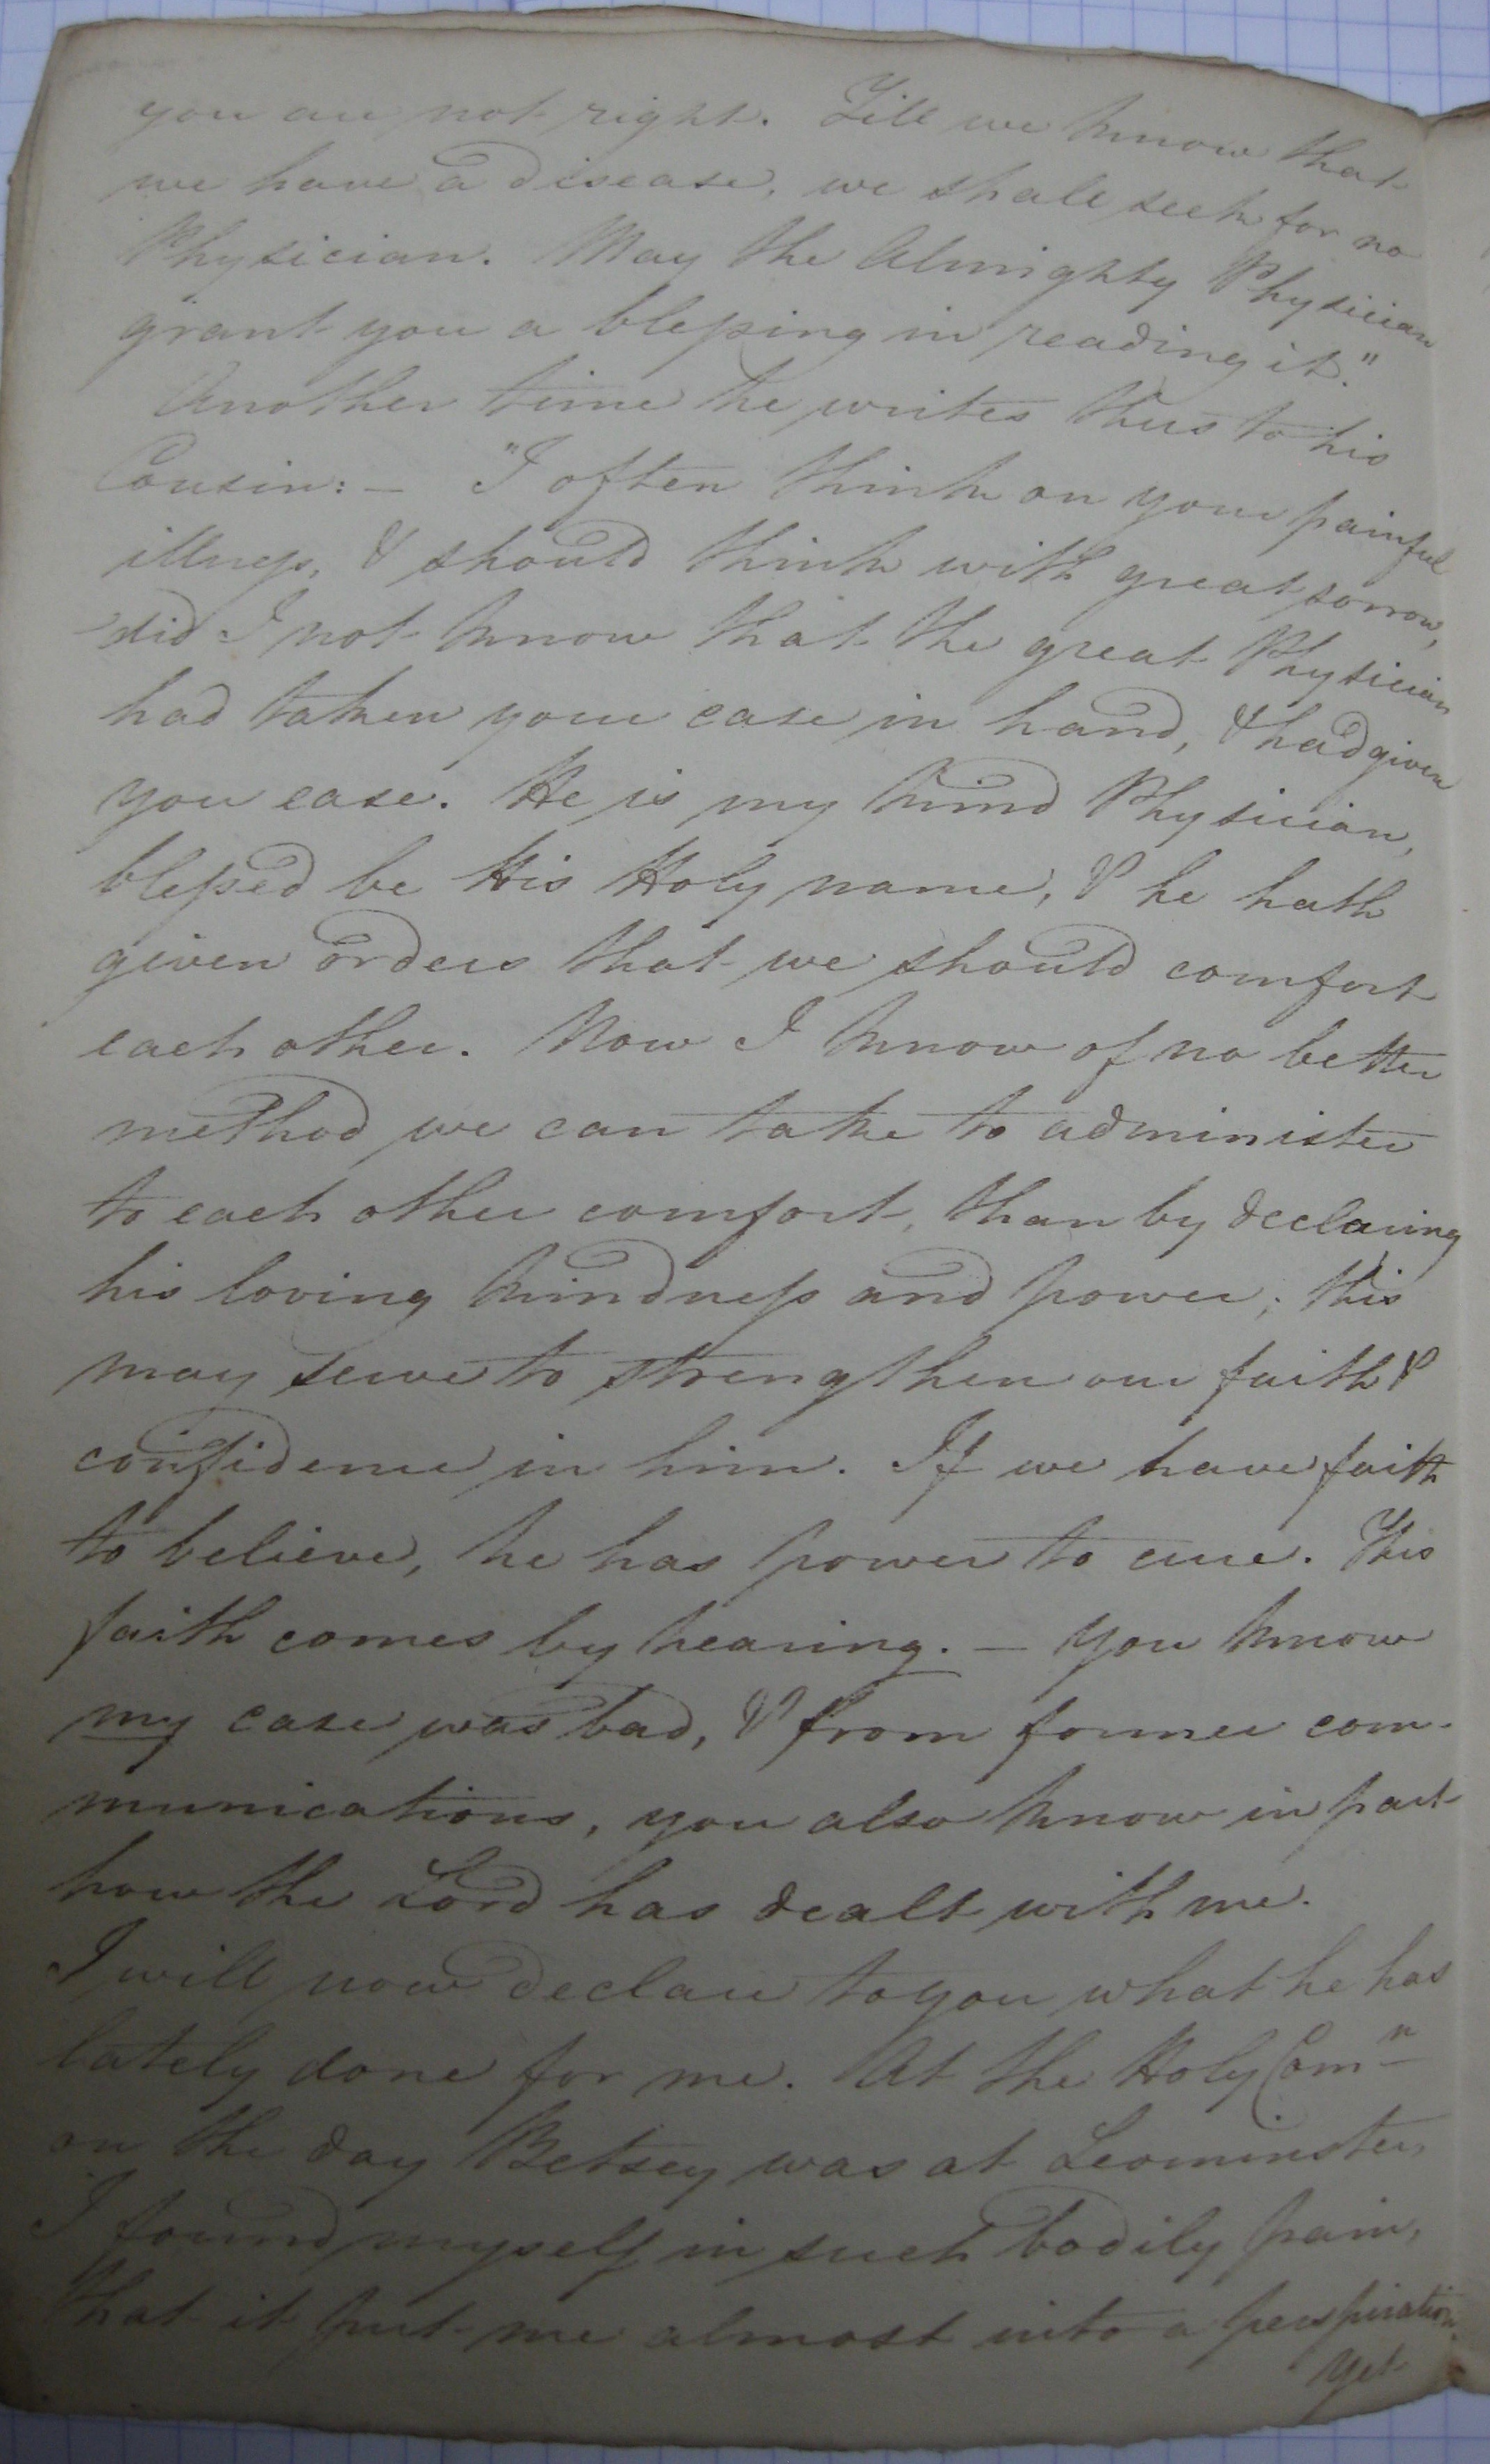 you are not right. Till we know that
we have a disease, we shall seek for no
Physician. May the Almighty Physician
grant you a blessing in reading it."
Another time he writes thus to his
Cousin: — "I often think on your painful
illness, & should think with great sorrow,
did I not know that the great Physician
had taken your case in hand, & had given
you ease. He is my kind Physician,
blessed be His Holy name, & he hath
given orders that we should comfort
each other. Now I know of no better
method we can take to administer
to each other comfort, than by declaring
his loving kindness and power; this
may serve to strengthen our faith &
confidence in him. If we have faith
to believe, he has power to cure. This
faith comes by hearing. — You know
my case was bad, & from former com-
munications, you also know in part
how the Lord has dealt with me.
I will now declare to you what he has
lately done for me. At the Holy Comn
on the day Betsey was at Leominster,
I found myself in such bodily pain,
that it put me almost into a perspiration.
Yet